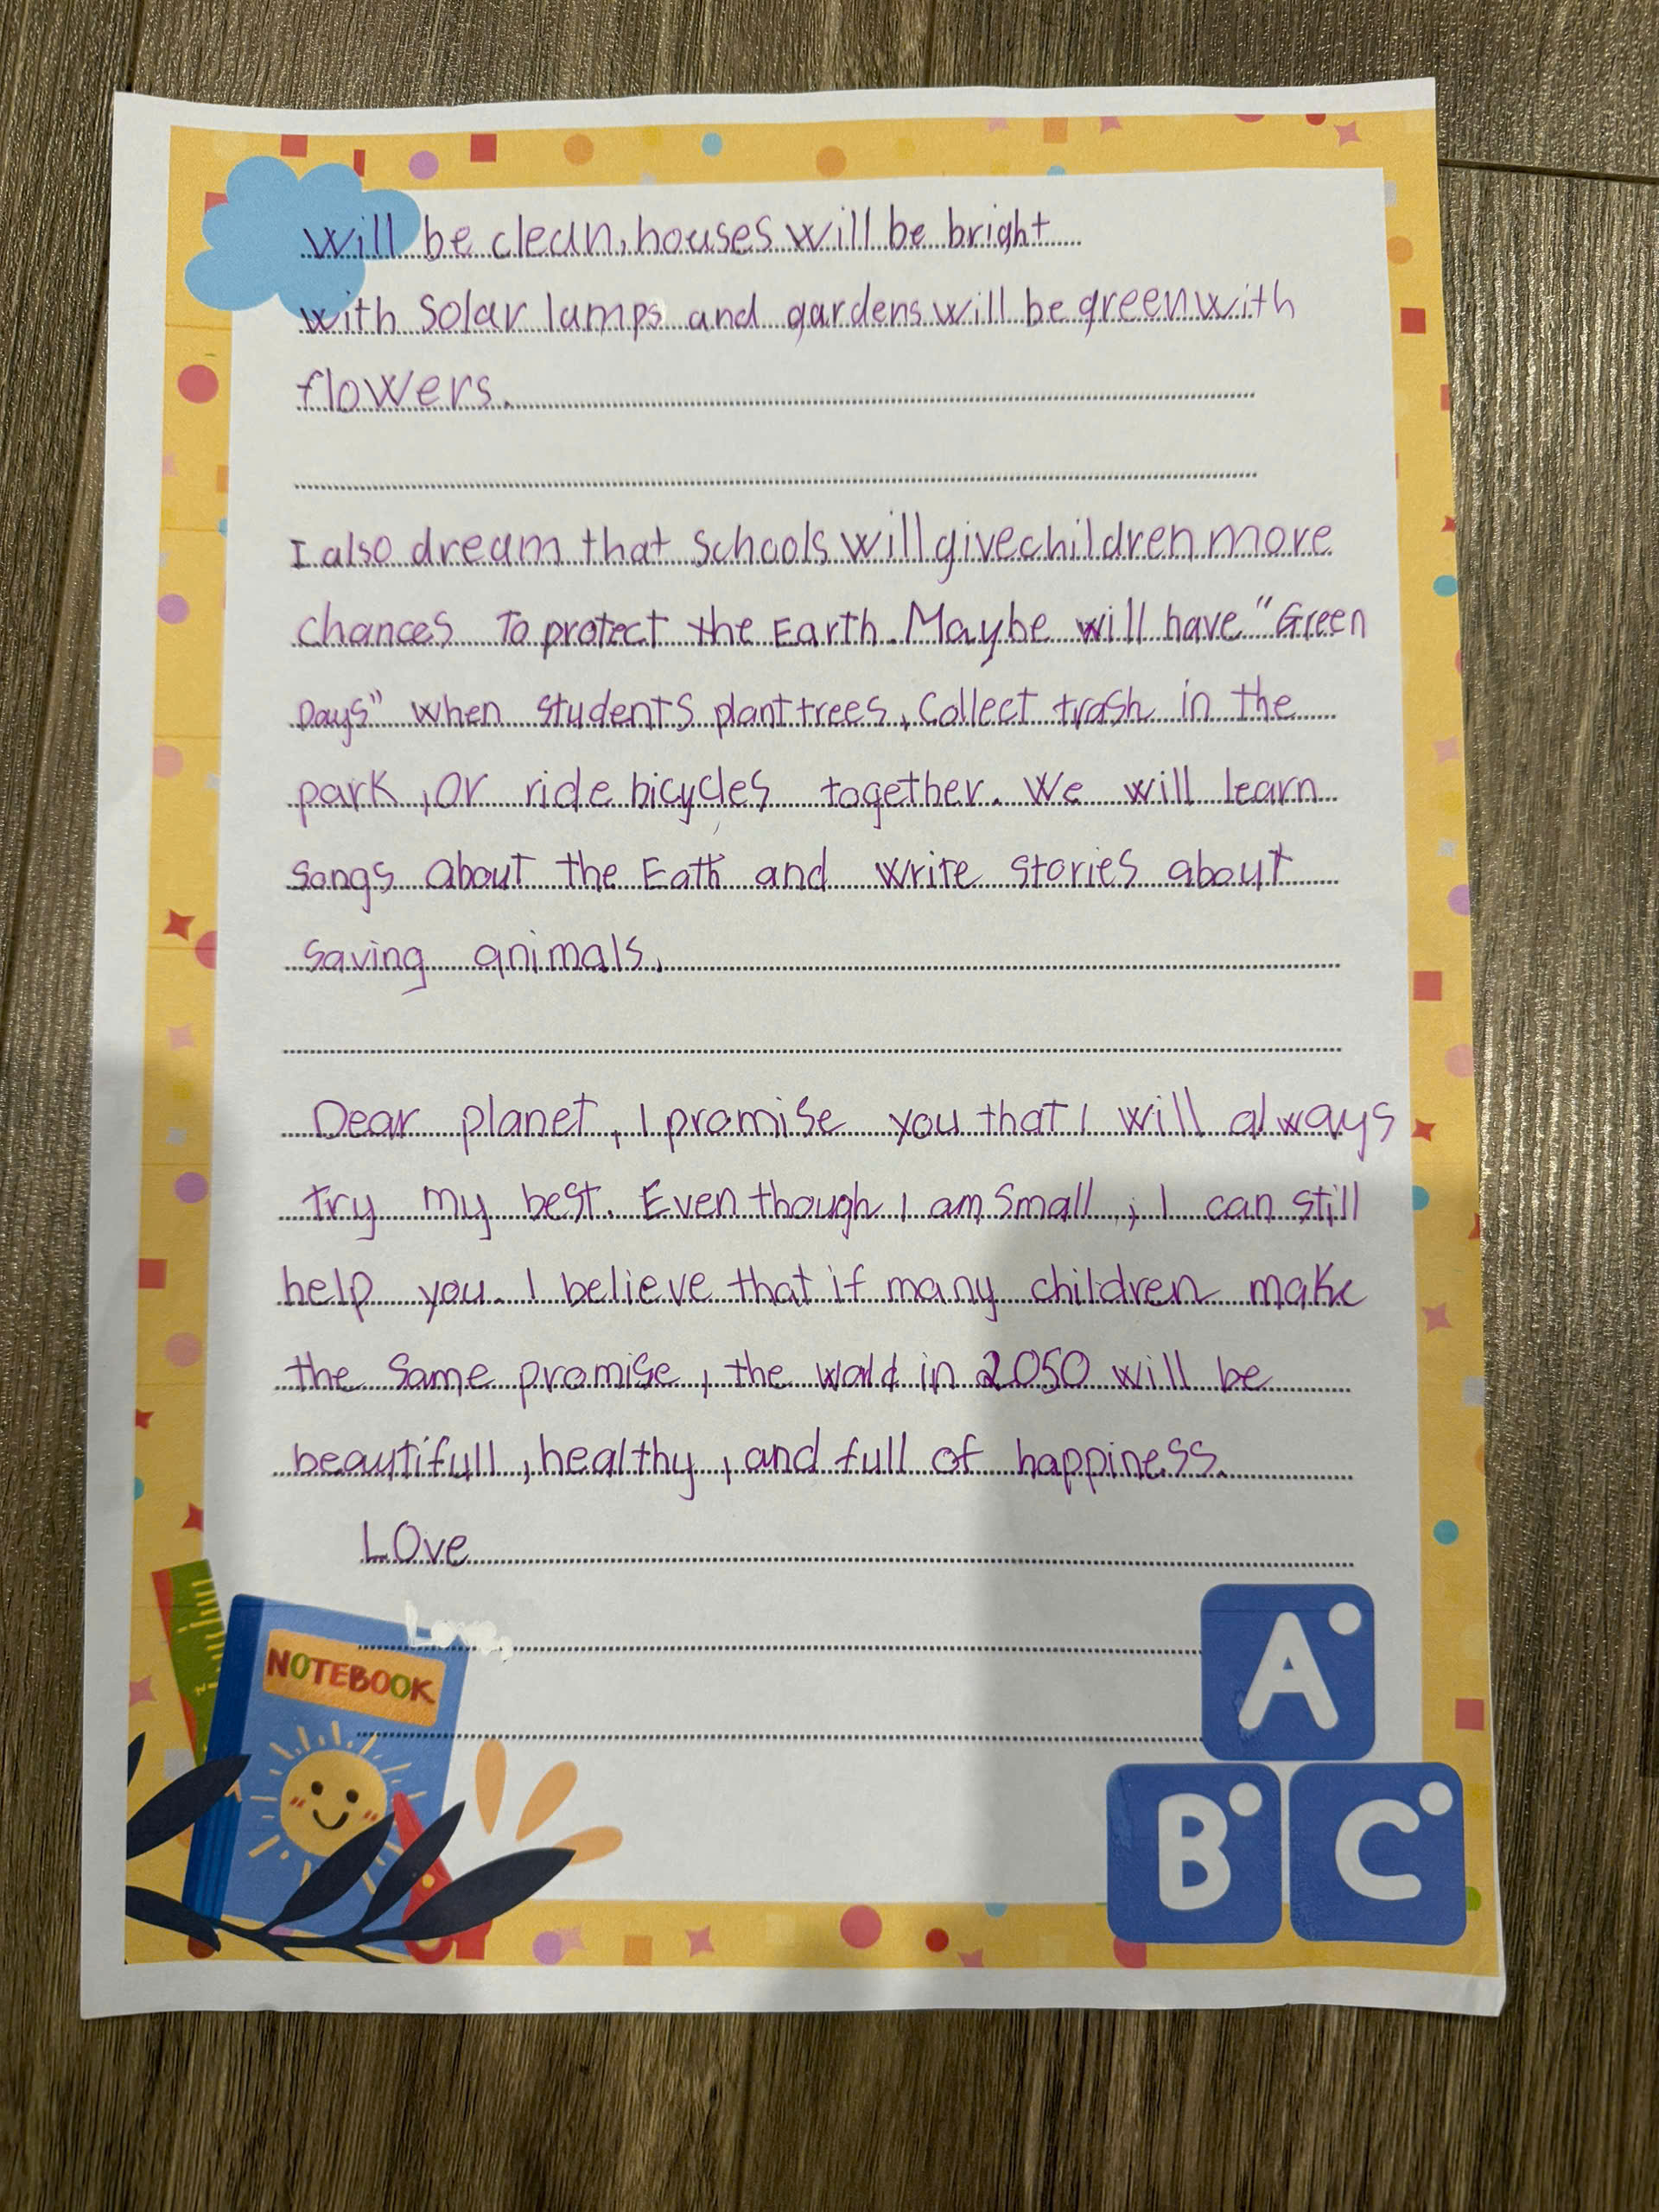 will be clean, houses will be bright
with solar lamps and gardens will be green with
flowers.
I also dream that schools will give children more
chances To protect the Earth. Maybe will have "Green
Days" when students plant trees, collect trash in the
park, or ride bicycles together. We will learn
songs about the Eath and write stories about
saving animals.
Dear planet, I promise you that I will always
try my best. Even though I am small, I can still
help you. I believe that if many children make
the same promise, the world in 2050 will be
beautifull, healthy, and full of happiness.
LOve
Love,
NOTEBOOK
A
B C